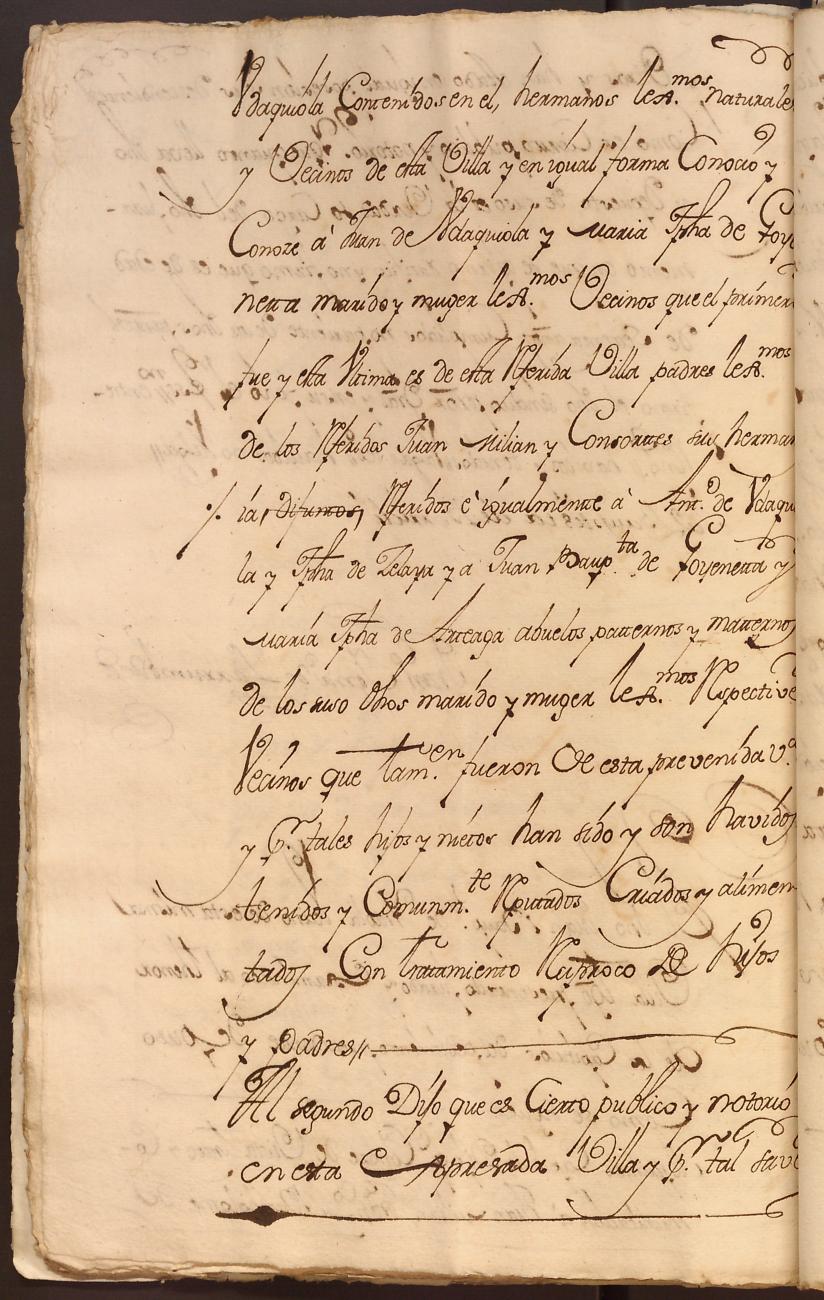 Vdaquiola Contenidos en el, hermanos lex.mos naturales
y Vecinos de esta Villa y en igual forma Conoció y
Conoze à Juan de Vdaquiola y Maria Jpha de Goye
netta marido y muger lex.mos Vecinos que el primer
fue y esta Vltima es de esta Referida Villa padres lex.mos
de los Referidos Juan Milian y Consortes sus herman
ia, difuntos, Referidos è igualmente à Ant.º de Vdaqui
la y Jpha de Zelaya y à Juan Baup.ta de Goyenetta y
Maria Jpha de Arteaga abuelos patternos y matternos
de los suso dhos marido y muger lex.mos Respectivê
Vecinos que tam.en fueron de esta prevenida V.ª
y p.r tales hijos y nietos han sido y son havidos
tenidos y Comunm.te Reputados Criados y alimen
tados Con tratamiento Reciproco de hijos
y Padres//
Al segundo Dijo que es Cierto publico y notorio
en esta expresada Villa y p.r tal save